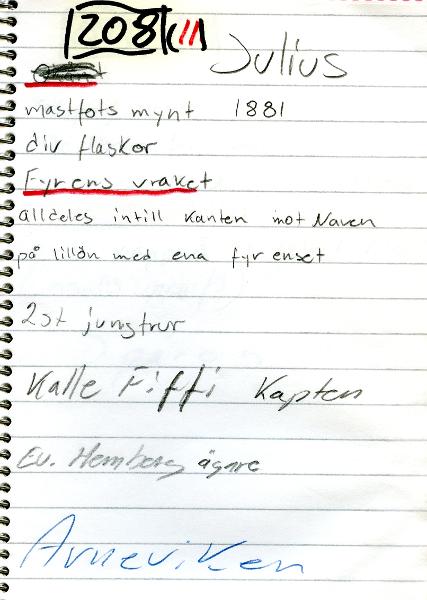 208
Julius
mastfots mynt 1881
div flaskor
Fyrens vraket
alldeles intill kanten mot Naven
på lillön med ena fyrenset
2st jungfrur
Kalle Fiffi Kapten
Ev. Hemberg ägare
Arneviken